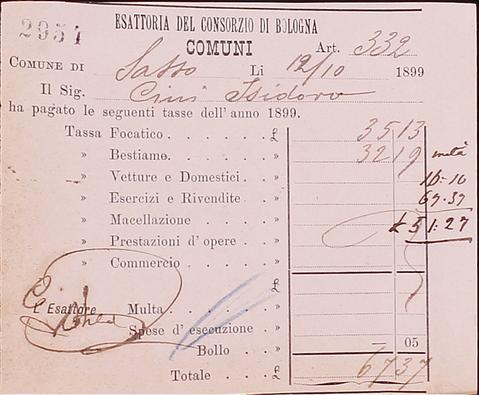 2954
ESATTORIA DEL CONSORZIO DI BOLOGNA
COMUNI
Art. 332
COMUNE DI Sasso Li 12/10 1899
Il Sig. Cini Isidoro
ha pagato le seguenti tasse dell' anno 1899.
Tassa Focatico . . . . . £ 35 13
» Bestiame. . . . . . » 32 19 metà
» Vetture e Domestici . . » 16-10
» Esercizi e Rivendite . . » 67.37
» Macellazione . . . . » £ 51:27
» Prestazioni d' opere . . »
» Commercio . . . . . »
£
L' Esattore Multa. . . . . »
Spese d' esecuzione . »
Bollo . . » — 05
Totale . . . £ 67 37